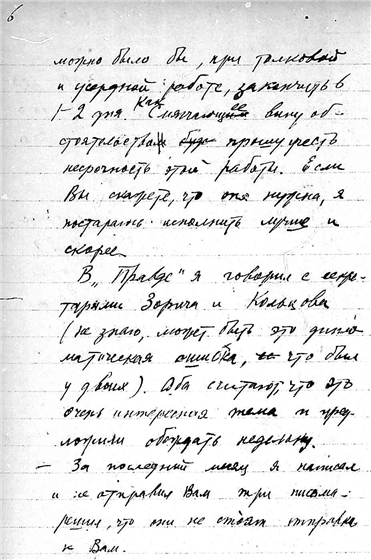 6
можно было бы, при толковой
и усердной работе, закончить в
1-2 дня. Как смягчающее ее вину об-
стоятельство прошу учесть
несрочность этой работы. Если
Вы скажете, что она нужна, я
постараюсь исполнить лучше и
скорее
В „Правде" я говорил с секре-
тарями Зорича и Кольцова
(не знаю, может быть это дипло-
матическая ошибка, что был
у двоих). Оба считают, что это
очень интересная тема и пред-
ложили обождать недельку.
— За последний месяц я написал
и не отправил Вам три письма -
решив, что они не стоят отправки
к Вам.